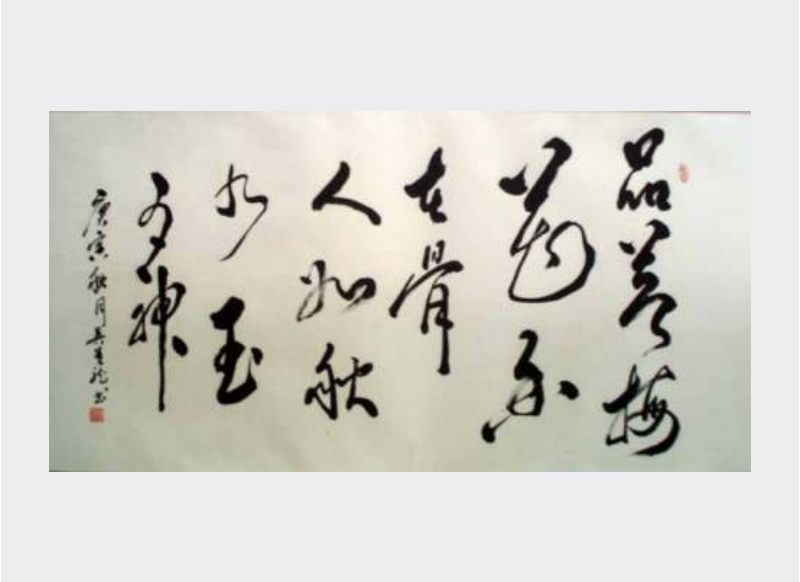 品若梅
花香
在骨
人如秋
水玉
为神
庚寅秋月